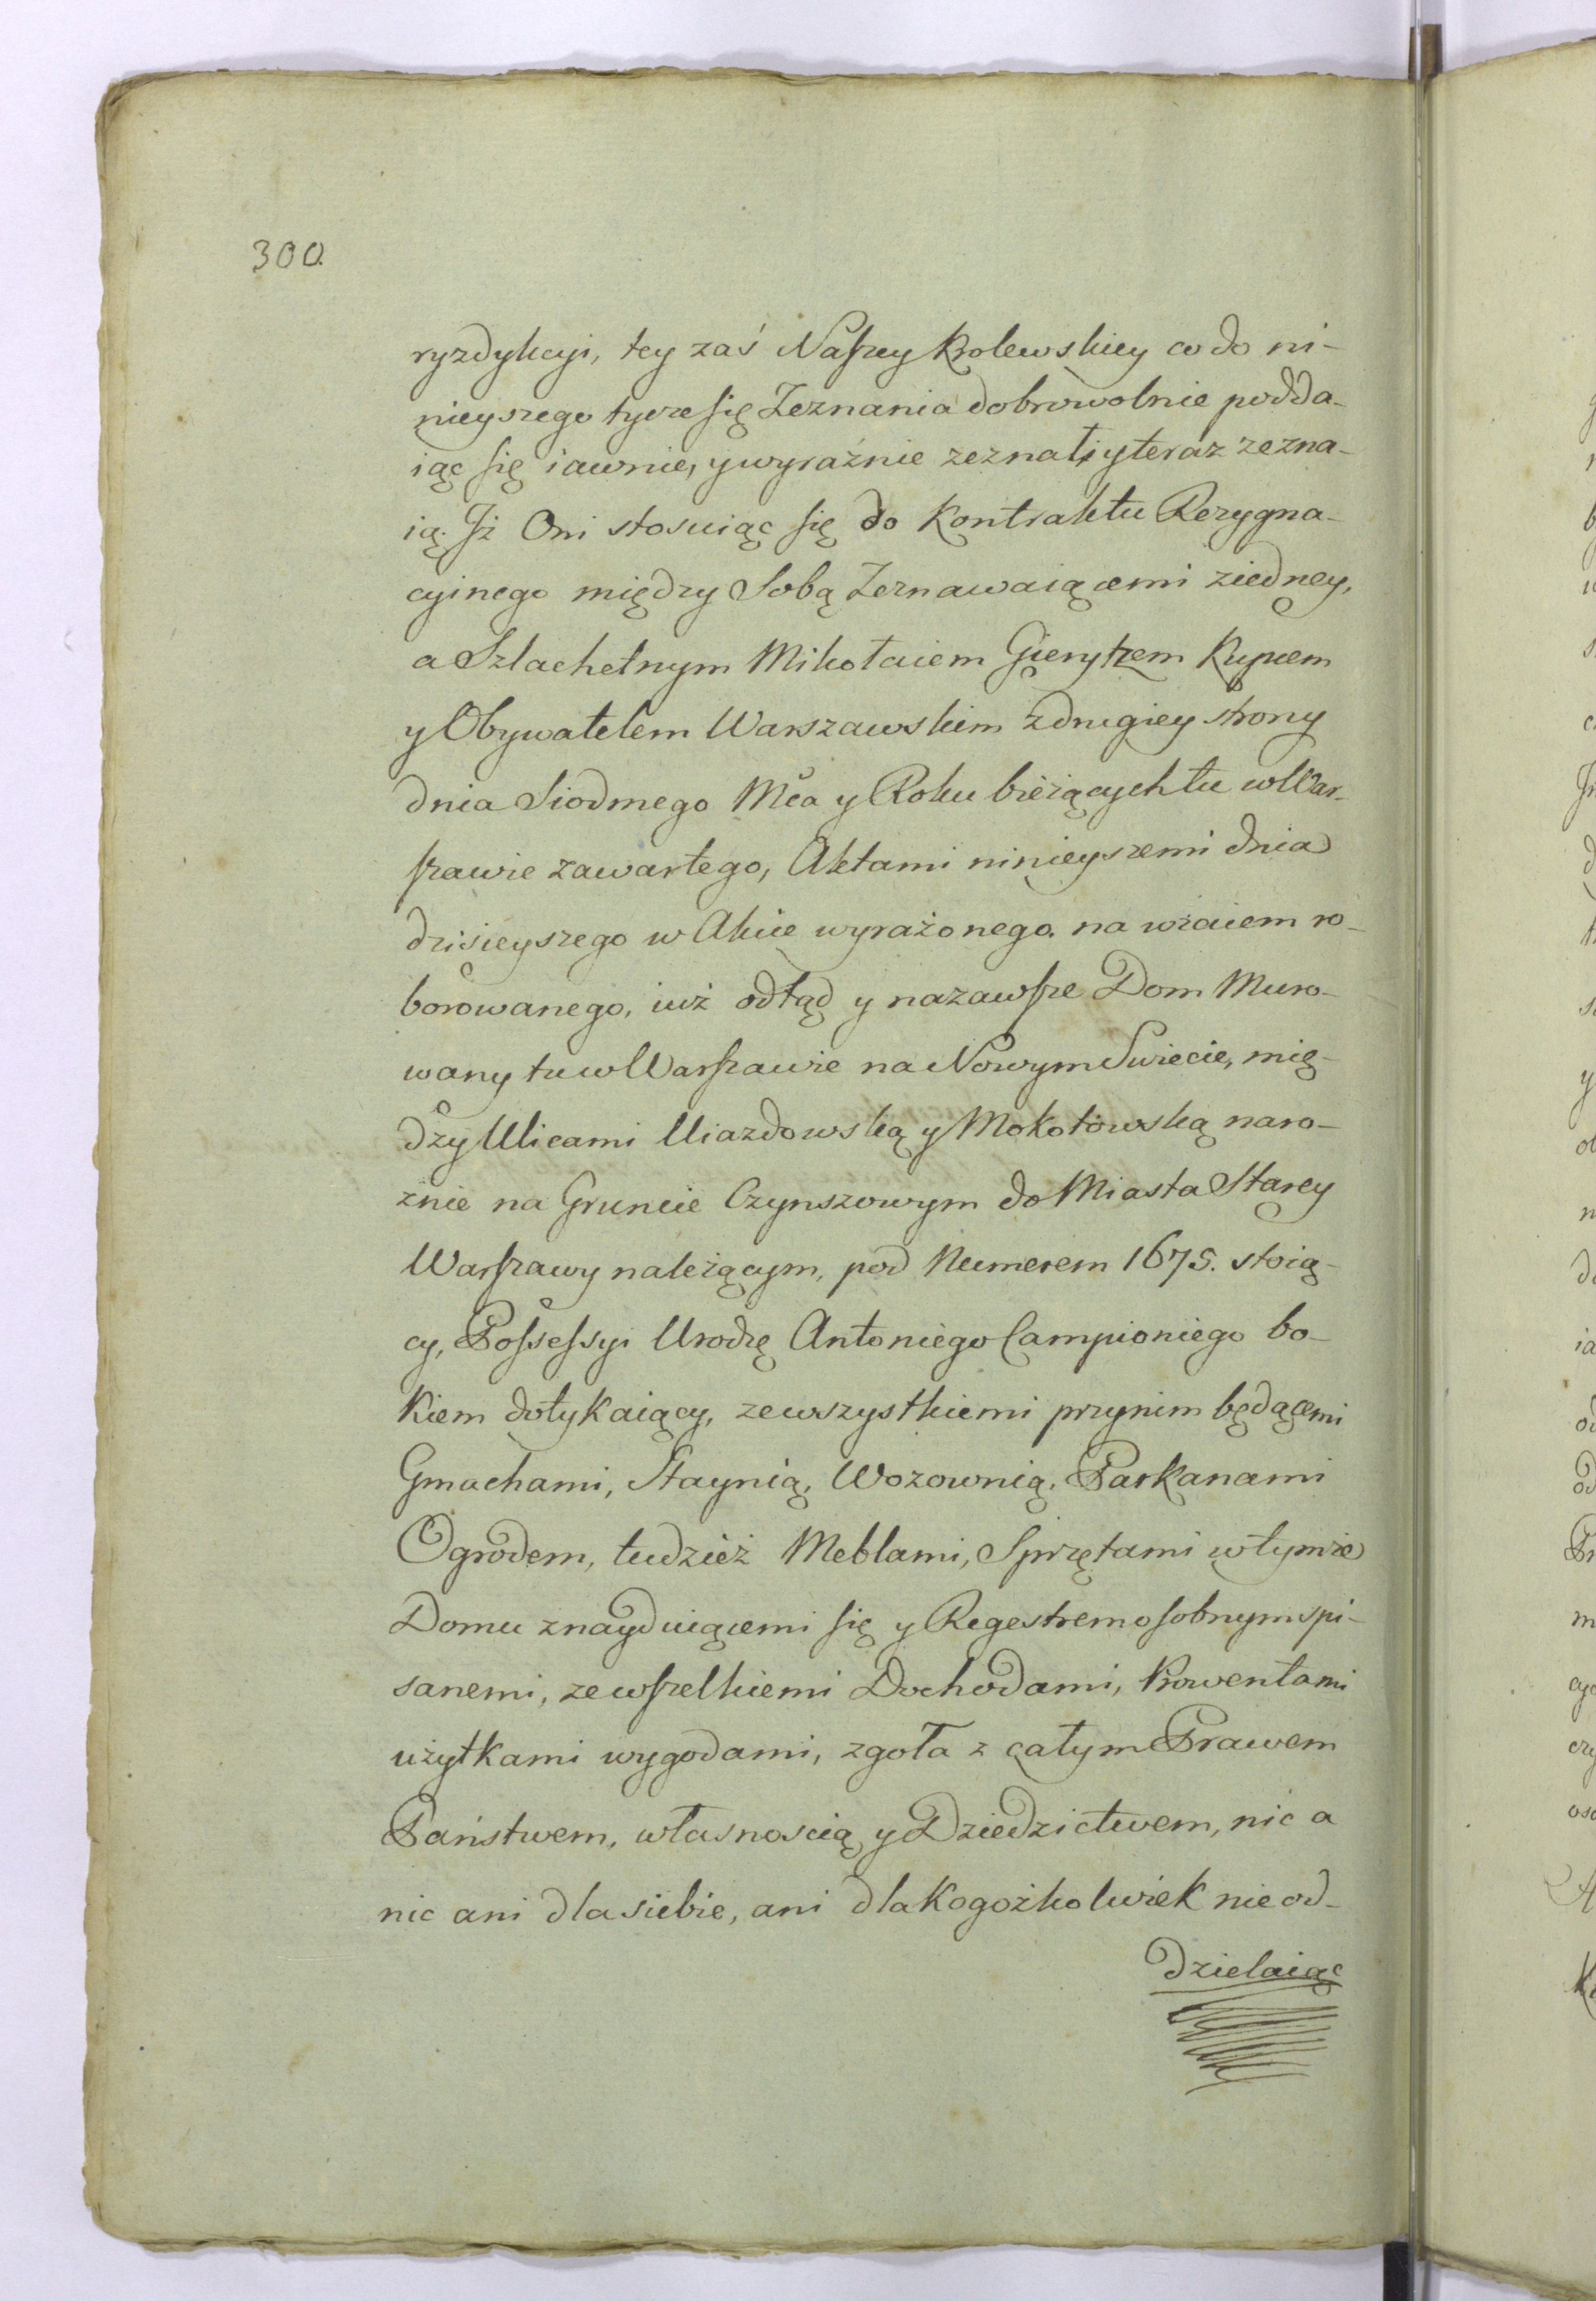 300.
ryzdykcyi, tey zaś Naszey Krolewskiey co do ni-
nieyszego tycze się Zeznania dobrowolnie podda-
iąc się iawnie, y wyraźnie zeznali y teraz zezna-
ią. Jż Oni stosuiąc się do Kontraktu Rezygna-
cyinego między Sobą Zeznawaiącemi ziedney,
a Szlachetnym Mikołaiem Gierytzem Kupcem
y Obywatelem Warszawskim z drugiey strony
dnia Siodmego Mca y Roku bieżących tu w War-
szawie zawartego, Aktami ninieyszemi dnia
dzisieyszego w Akcie wyrażonego. nawzaiem ro-
borowanego, iuż odtąd y nazawsze Dom Muro-
wany tu w Warszawie na Nowym Swiecie, mię-
dzy Ulicami Uiazdowską y Mokotowską naro-
żnie na Gruncie Czynszowym do Miasta Starey
Warszawy należącym, pod Numerem 1675. stoią-
cy, Possessyi Urodzę Antoniego Campioniego bo-
kiem dotykaiący, ze wszystkiemi przy nim będącemi
Gmachami, Staynią, Wozownią, Parkanami
Ogrodem, tudzież Meblami, Sprzętami w tymże
Domu znayduiącemi się y Regestrem osobnym spi-
sanemi, ze wszelkiemi Dochodami, Prowentami
użytkami wygodami, zgoła z całym Prawem
Państwem, własnoscią y Dziedzictwem, nic a
nic ani dla siebie, ani dla kogożkolwiek nie od-
dzielaiąc